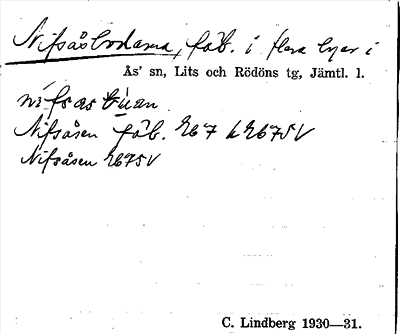 Nifsåsbodarna, fäb. i flera byar i
Ås' sn, Lits och Rödöns tg, Jämtl. l.
nifsas
Nifsåsen fäb. 267 k 2675V
Nifsåsen 2675V
C. Lindberg 1930—31.